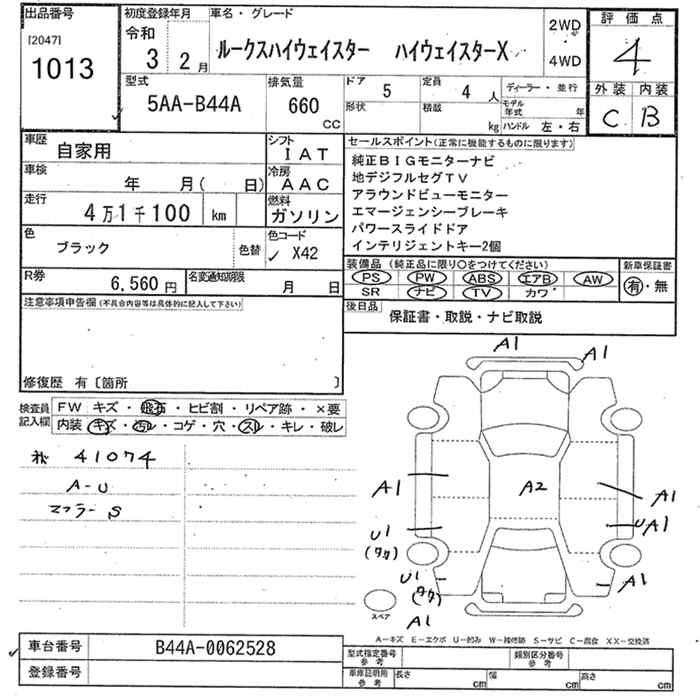 出品番号 初度登録年月 車名・グレード 2WD 評価点
[2047] 令和
1013 3 2月 ルークスハイウェイスター ハイウェイスターX 4WD 4
型式 排気量 ドア 5 定員 4人 ディーラー・並行 外装 内装
5AA-B44A 660 CC 形状 積載 kg モデル年式 年 C B
ハンドル 左・右
車歴 自家用 シフト IAT セールスポイント(正常に機能するものに限ります)
車検 年 月( 日) 冷房 AAC 純正BIGモニターナビ
地デジフルセグTV
走行 4万1千100 km 燃料 ガソリン アラウンドビューモニター
エマージェンシーブレーキ
色 ブラック 色替 色コード X42 パワースライドドア
インテリジェントキー2個
R券 6,560円 名変通知期限 月 日 装備品(純正品に限り○をつけてください) 新車保証書
PS PW ABS エアB AW 有・無
SR ナビ TV カワ
注意事項申告欄(不具合内容等は具体的に記入して下さい) 後日品 保証書・取説・ナビ取説
修復歴 有〔箇所 〕
検査員記入欄 FW キズ・飛石・ヒビ割・リペア跡・×要
内装 キズ・汚レ・コゲ・穴・スレ・キレ・破レ
41074
A-U
マフラー S
A1 A1
A1 A2 A1
U1 UA1
U1 A1
A1
スペア
A-キズ E-エクボ U-凹み W-補修跡 S-サビ C-腐食 XX-交換済
車台番号 B44A-0062528 型式指定番号 参考 類別区分番号 参考
登録番号 車庫証明用 参考 長さ cm 幅 cm 高さ cm